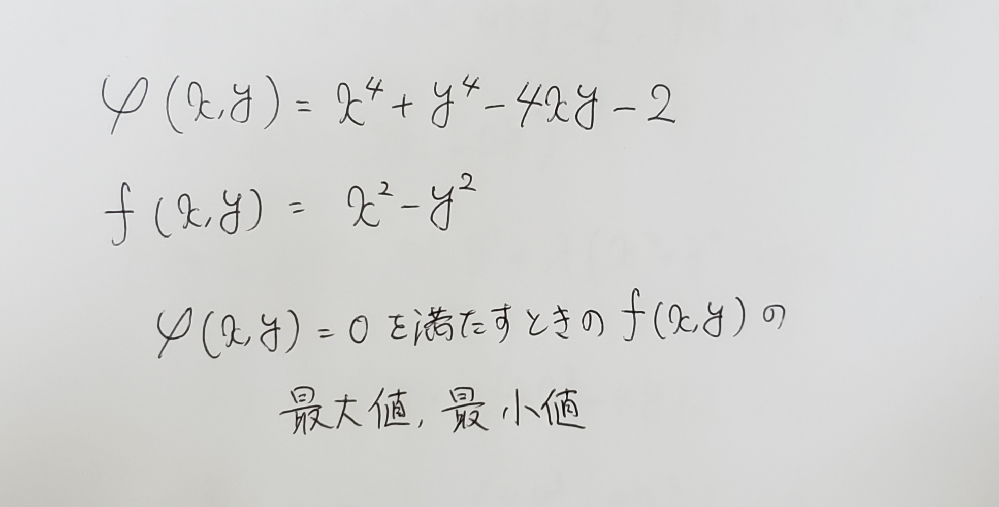 φ(x,y) = x⁴ + y⁴ - 4xy - 2
f(x,y) = x² - y²
φ(x,y) = 0 を満たすときの f(x,y) の
最大値, 最小値